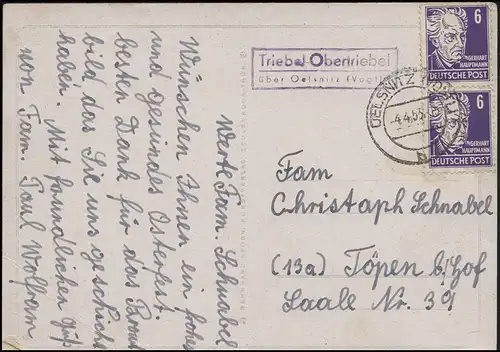 Triebel-Obertriebel
über Oelsnitz (Vogtl)
OELSNITZ (VOGTL)
-4.4.53
6
GERHART
HAUPTMANN
DEUTSCHE POST
6
GERHART
HAUPTMANN
DEUTSCHE POST
Werte Fam. Schnabel
Wünschen Ihnen ein frohes
und gesundes Osterfest.
besten Dank für das Braut
bild, das Sie uns geschickt
haben. Mit freundlichen Grüß
von Fam. Paul
Fam
Christoph Schnabel
(13a) Töpen b/Hof
Saale Nr. 39